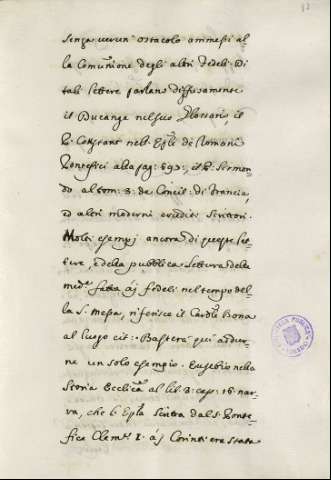 senza verun ostacolo ammessi al-
la Comunione degli altri Fedeli. Di
tali lettere parlano diffusamente
il Ducange nel suo Glossario, il
P. Constant nell' Epl. de Romani
Pontefici alla pag: 693:, il P. Sirmon
do al tom: 3: de Concil: di Francia,
ed altri moderni eruditi scrittori.
Molti esempj ancora di queste let-
tere, e della pubblica lettura delle
med.e fatta a'j fedeli nel tempo del-
la S. Messa, riferisce il Card.le Bona
al luogo cit: Basterà quì addur-
ne un solo esempio. Eusebio nella
Storia Ecclica al lib: 3: cap: 16: nar-
ra, che l' Epla scritta dal S. Ponte-
fice Clem.te I. a'j Corinti era stata